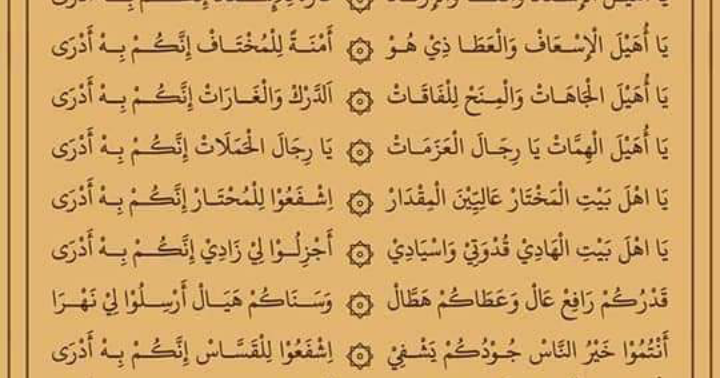 يَا أُهَيْلَ الْإِسْعَافْ وَالْعَطَا ذِيْ هُوْ ۞ أَمْنَةً لِلْمُخْتَافْ إِنَّكُمْ بِهْ أَدْرَى
يَا أُهَيْلَ الْجَاهَاتْ وَالْمِنَحْ لِلْفَاقَاتْ ۞ اَلدَّرْكْ وَالْغَارَاتْ إِنَّكُمْ بِهْ أَدْرَى
يَا أُهَيْلَ الْهِمَّاتْ يَا رِجَالَ الْعَزَمَاتْ ۞ يَا رِجَالَ الْحَمَلَاتْ إِنَّكُمْ بِهْ أَدْرَى
يَا اهْلَ بَيْتِ الْمَخْتَارْ عَالِيِّيْنَ الْمِقْدَارْ ۞ اِشْفَعُوْا لِلْمُحْتَارْ إِنَّكُمْ بِهْ أَدْرَى
يَا اهْلَ بَيْتِ الْهَادِيْ قُدْوَتِيْ وَاسْيَادِيْ ۞ أَجْزِلُوْا لِيْ زَادِيْ إِنَّكُمْ بِهْ أَدْرَى
قَدْرُكُمْ رَافِعْ عَالْ وَعَطَاكُمْ هَطَّالْ ۞ وَسَنَاكُمْ هَيَالْ أَرْسِلُوْا لِيْ نَهْرَا
أَنْتُمُوْا خَيْرُ النَّاسْ جُوْدُكُمْ يَشْفِيْ ۞ اِشْفَعُوْا لِلْقَسَّاسْ إِنَّكُمْ بِهْ أَدْرَى